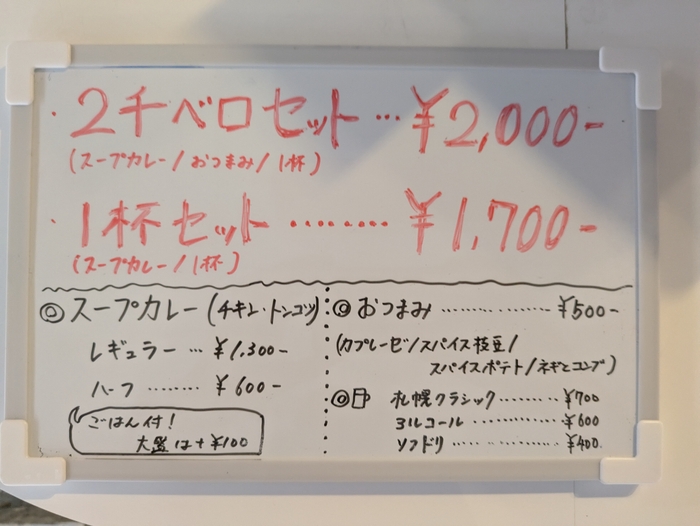 ・2千ベロセット…¥2,000-
(スープカレー/おつまみ/1杯)
・1杯セット………¥1,700-
(スープカレー/1杯)
◎スープカレー(チキン・トンコツ)
レギュラー…¥1,300-
ハーフ………¥600-
ごはん付!
大盛は+¥100
◎おつまみ……………¥500-
(カプレーゼ/スパイス枝豆/
スパイスポテト/ネギとコンブ)
◎ 札幌クラシック………¥700
ヨルコール……………¥600
ソフドリ……………¥400